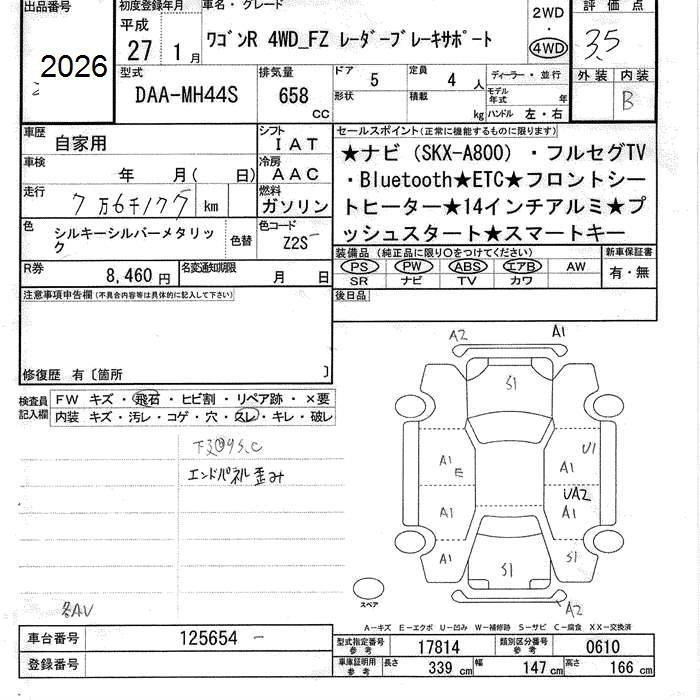 出品番号
2026
初度登録年月
平成
27 1月
車名・グレード
ワゴンR 4WD_FZ レーダーブレーキサポート
2WD
・
4WD
評価点
3.5
外装 内装
B
型式
DAA-MH44S
排気量
658
cc
ドア 5
形状
定員 4 人
積載 kg
ディーラー・並行
モデル年式 年
ハンドル 左・右
車歴
自家用
シフト
IAT
車検
年 月( 日)
冷房
AAC
走行
7万6千 km
燃料
ガソリン
色
シルキーシルバーメタリック
色替
色コード
Z2S
R券
8,460 円
名変通知期限
月 日
セールスポイント(正常に機能するものに限ります)
★ナビ(SKX-A800)・フルセグTV
・Bluetooth★ETC★フロントシー
トヒーター★14インチアルミ★プ
ッシュスタート★スマートキー
装備品(純正品に限り○をつけてください)
PS PW ABS エアB AW
SR ナビ TV カワ
新車保証書
有・無
後日品
注意事項申告欄(不具合内容等は具体的に記入して下さい)
修復歴 有〔箇所 〕
検査員記入欄
FW キズ・飛石・ヒビ割・リペア跡・×要
内装 キズ・汚レ・コゲ・穴・スレ・キレ・破レ
エンドパネル歪み
各AU
A2 A1
S1
A1 E
U1
A1
UA2
A1
A1
A1
S1
S1
A2
スペア
A-キズ E-エクボ U-凹み W-補修跡 S-サビ C-腐食 XX-交換済
車台番号
125654
登録番号
型式指定番号参考
17814
類別区分番号参考
0610
車庫証明用参考
長さ 339 cm
幅 147 cm
高さ 166 cm